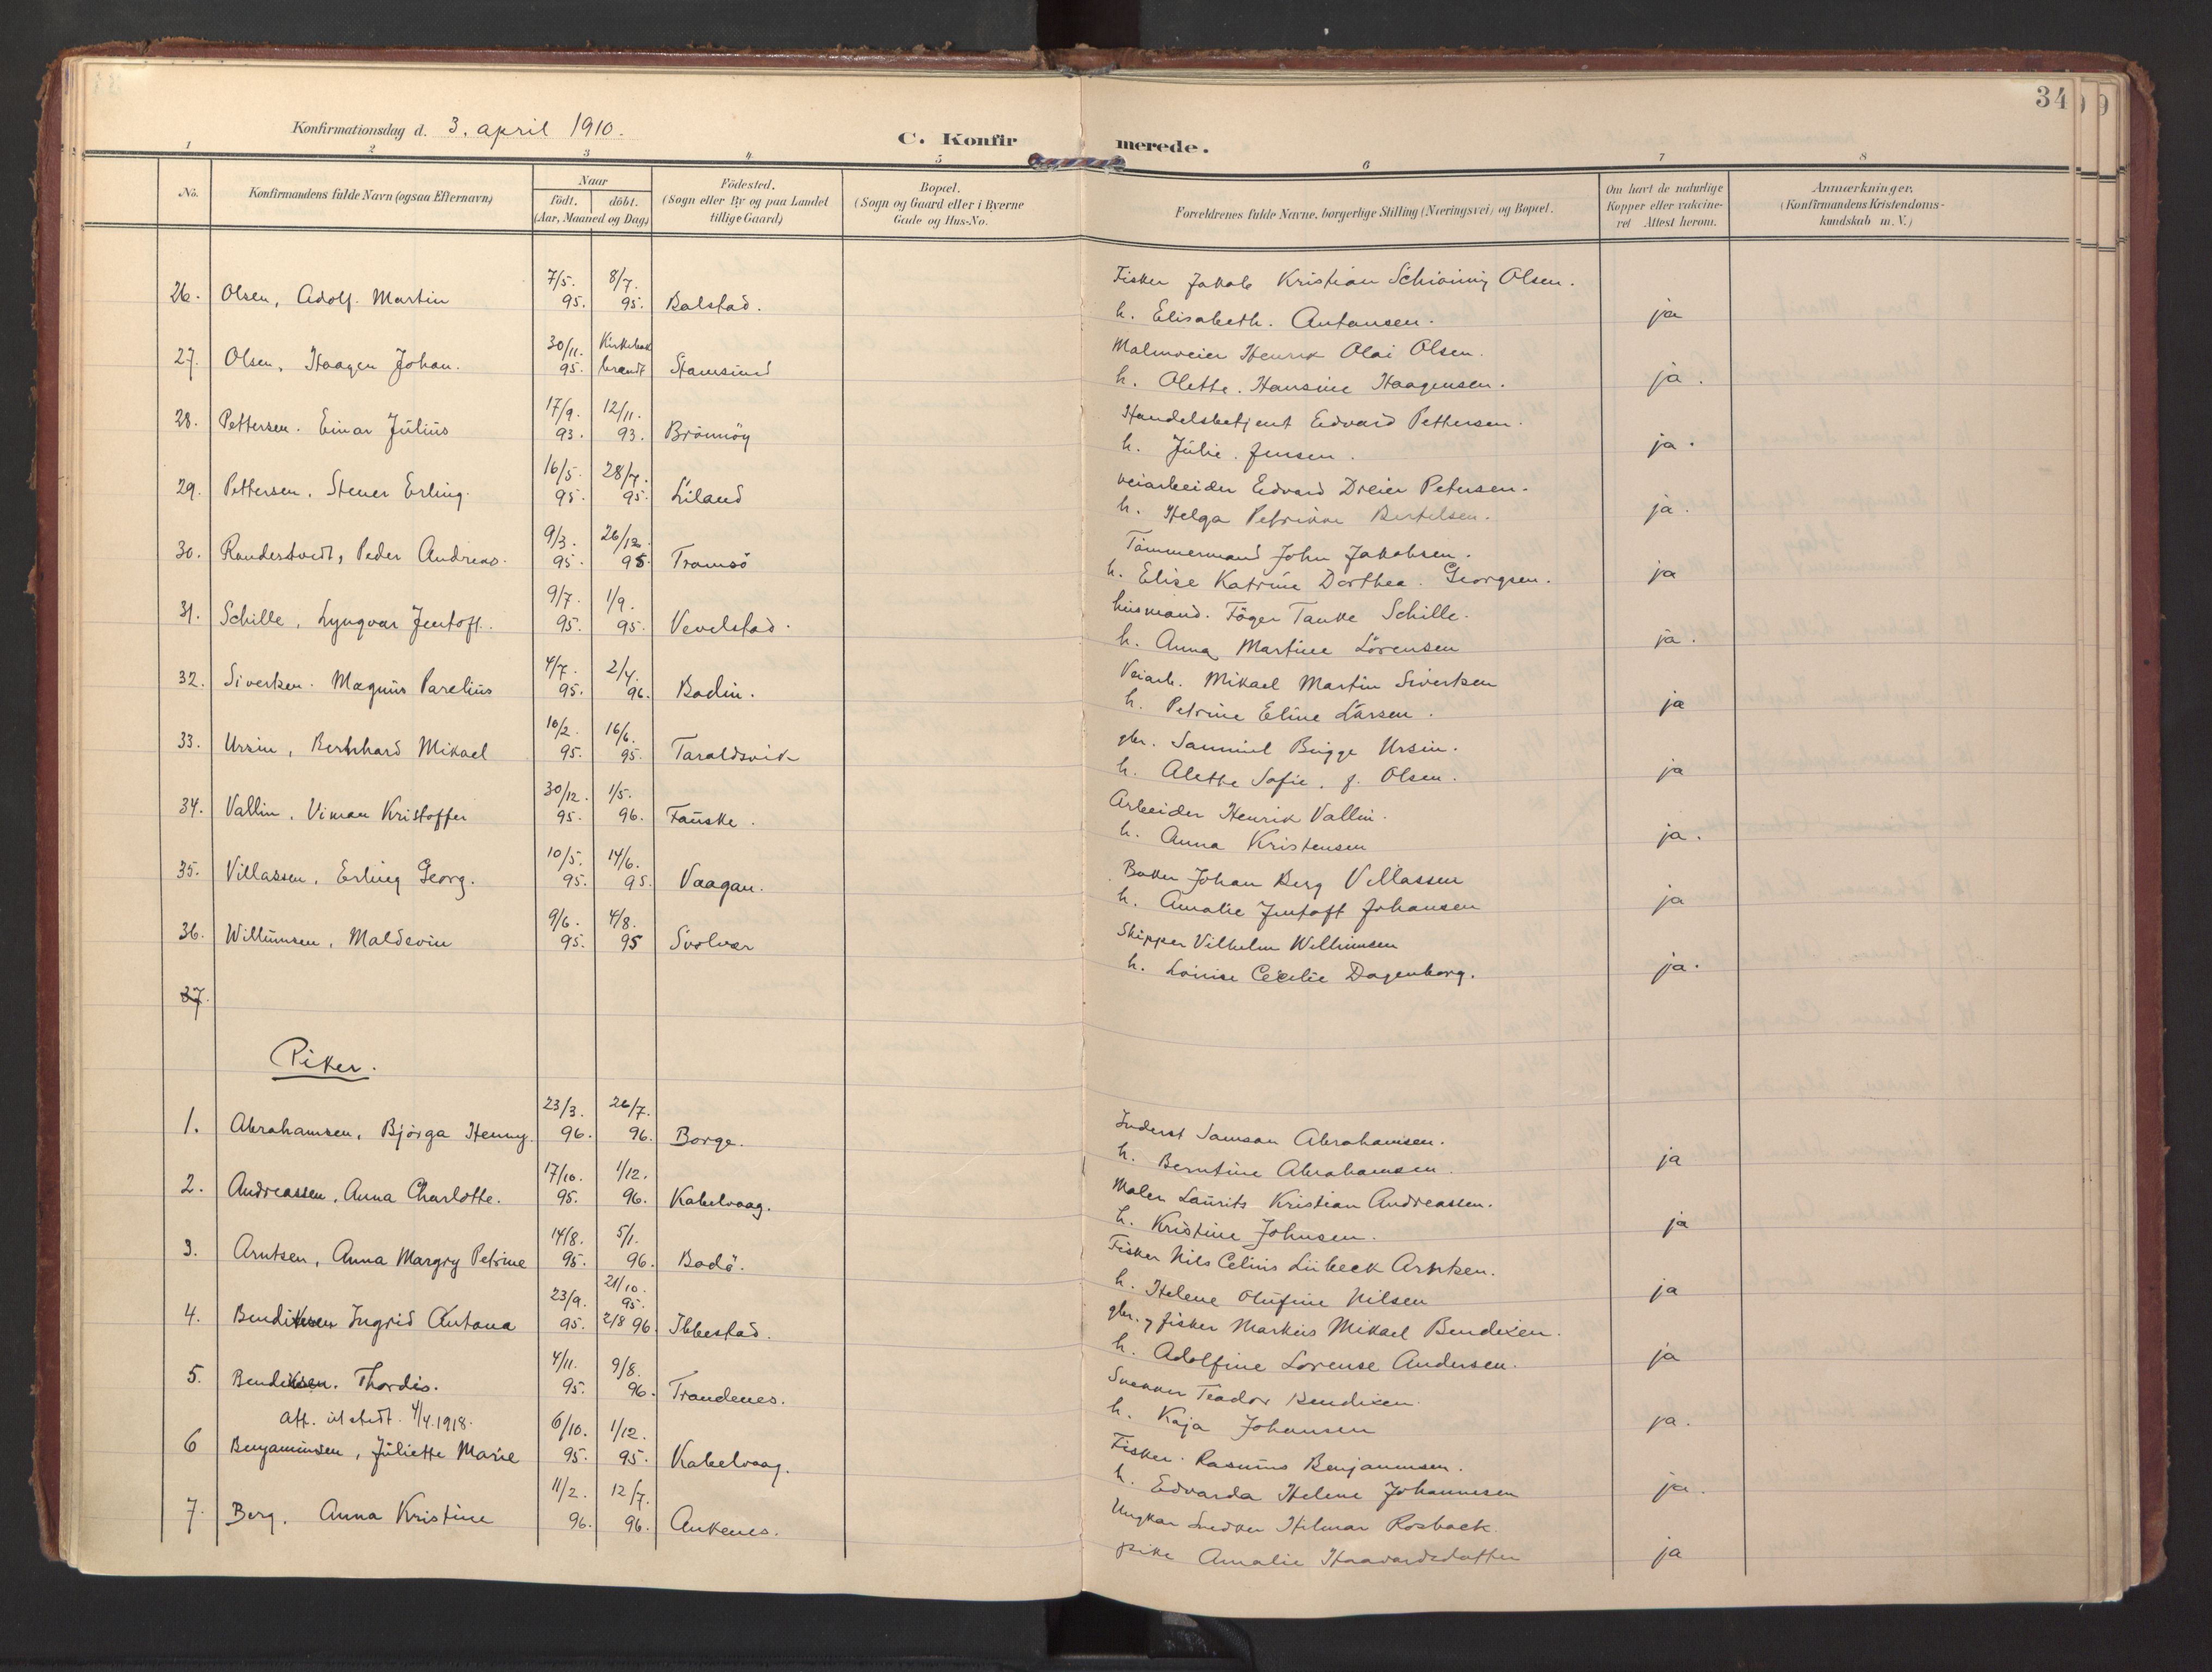 34
Konfirmationsdag d. 3. april 1910.
C. Konfirmerede.
1 2 3 4 5 6 7 8
No.
Konfirmandens fulde Navn (ogsaa Efternavn)
Naar
födt. döbt.
(Aar, Maaned og Dag)
Födested.
(Sogn eller By og paa Landet
tillige Gaard)
Bopæl.
(Sogn og Gaard eller i Byerne
Gade og Hus-No.
Forældrenes fulde Navne, borgerlige Stilling (Næringsvei) og Bopæl.
Om havt de naturlige
Kopper eller vakcine-
ret Attest herom.
Anmærkninger.
(Konfirmandens Kristendoms-
kundskab m. V.)
7/5. 8/7. Fisker Jakob Kristian Schiöning Olsen.
26. Olsen, Adolf Martin 95. 95. Balstad. h. Elisabeth. Antonsen. ja
30/11. Kirkebok Malmveier Henrik Olai Olsen.
27. Olsen, Haagen Johan. 95. brændt Stamsund h. Olette. Hansine Haagensen. ja.
17/9. 12/11. Handelsbetjent Edvard Pettersen.
28. Pettersen. Einar Julius 93. 93. Brönnöy h. Julie. Jensen. ja.
16/5. 28/7. veiarbeider Edvard Dreier Petersen.
29. Pettersen, Stener Erling. 95. 95. Liland h. Helga Petrikke Bertelsen. ja.
9/3. 26/12. Tömmermand John Jakobsen.
30. Randestvedt, Peder Andreas. 95. 95. Tromsö h. Elise Katrine Dorthea. Georgsen. ja
9/7. 1/9. husmand. Föger Tanke Schille.
31. Schille, Lyngvar Jentoft. 95. 95. Vevelstad. h. Anna Martine Lorensen ja.
4/7. 2/4. Veiarb. Mikael Martin Sivertsen
32. Sivertsen. Magnus Parelius 95. 96. Bodin. h. Petrine Eline Larsen. ja
10/2. 16/6. gbr. Samuel Brigge Ursin.
33. Ursin, Bernhard Mikael 95. 95. Taraldsvik h. Alette Sofie. f. Olsen. ja
30/12. 1/5. Arbeider Henrik Vallin.
34. Vallin, Viman Kristoffer 95. 96. Fauske. h. Anna Kristensen ja.
10/5. 14/6. Baker Johan Berg Villassen
35. Villassen, Erling Georg. 95. 95. Vaagan. h. Amalie Jentoft Johansen ja
9/6. 4/8. Skipper Vilhelm Willumsen
36. Willumsen, Maldevin 95. 95 Svolvær h. Louise Cecilie Dagenborg. ja.
37.
Piker.
23/3. 26/7. Inderst Samson Abrahamsen.
1. Abrahamsen, Björga Henny. 96. 96. Borge. h. Berntine Abrahamsen. ja
17/10. 1/12. Maler Laurits Kristian Andreassen.
2. Andreassen, Anna Charlotte. 95. 96. Kabelvaag. h. Kristine Johnsen. ja
14/8. 5/1. Fisker Nils Celius Lübeck Arntsen.
3. Arntsen, Anna Margry Petrine 95. 96. Bodö. h. Helene Olufine Nilsen ja
23/9. 21/10. 95. gbr. og fisker Markus Mikael Bendixen.
4. Bendiksen Ingrid Antona 95. 2/8 96. Ibbestad. h. Adolfine Lorense Andersen. ja
4/11. 9/8. Snekker Teador Bendixen.
5. Bendiksen. Thordis. 95. 96. Trondenes. h. Kaja Johansen ja.
Att. utstedt. 4/4. 1918.
6/10. 1/12. Fisker. Rasmus Benjaminsen.
6 Benjaminsen, Juliette Marie 95. 95. Kabelvaag. h. Edvarda Helene Johannesen ja.
11/2. 12/7. Ungkar Snedker Hilmar Rosbaek.
7. Berg. Anna Kristine 96. 96. Ankenes. pike Amalie Haavardsdatter ja